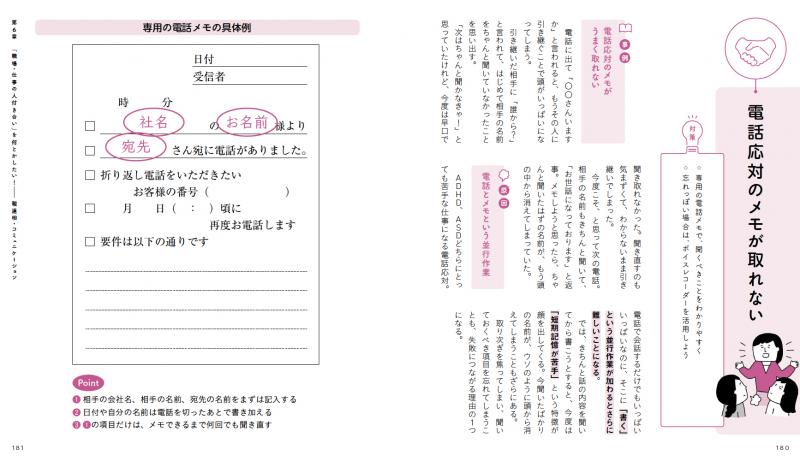 電話応対のメモが取れない
対策
○ 専用の電話メモで、聞くべきことをわかりやすく
○ 忘れっぽい場合は、ボイスレコーダーを活用しよう
事例
電話応対のメモが
うまく取れない
電話に出て「〇〇さんいます
か」と言われると、もうその人に
引き継ぐことで頭がいっぱいにな
ってしまう。
引き継いだ相手に「誰から?」
と言われて、はじめて相手の名前
をちゃんと聞いていなかったこと
を思い出す。
「次はちゃんと聞かなきゃ!」と
思っていたけれど、今度は早口で
聞き取れなかった。聞き直すのも
気まずくて、わからないまま引き
継いでしまった。
今度こそ、と思って次の電話。
相手の名前もきちんと聞いて、
「お世話になっております」と返
事。メモしようと思ったら、ちゃ
んと聞いたはずの名前が、もう頭
の中から消えてしまっていた。
原因
電話とメモという並行作業
ADHD、ASDどちらにとっ
ても苦手な仕事になる電話応対。
電話で会話するだけでもいっぱい
いっぱいなのに、そこに「書く」
という並行作業が加わるとさらに
難しいことになる。
では、きちんと話の内容を聞い
てから書こうとすると、今度は
「短期記憶が苦手」という特徴が
顔を出してくる。今聞いたばかり
の名前が、ウソのように頭から消
えてしまうこともざらにある。
取り次ぎを焦ってしまい、聞い
ておくべき項目を忘れてしまうこ
とも、失敗につながる理由の1つ
になる。
180
専用の電話メモの具体例
日付
受信者
時 分
□ 社名 の お名前 様より
□ 宛先 さん宛に電話がありました。
□ 折り返し電話をいただきたい
お客様の番号( )
□ 月 日( : )頃に
再度お電話します
□ 要件は以下の通りです
Point
❶ 相手の会社名、相手の名前、宛先の名前をまずは記入する
❷ 日付や自分の名前は電話を切ったあとで書き加える
❸ ❶の項目だけは、メモできるまで何回でも聞き直す
第6章 「職場・仕事の人付き合い」を何とかしたい! 報連相・コミュニケーション
181